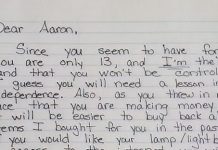 Dear Aaron,
Since you seem to have for
ou are only 13, and I'm the
and that you won't be control
guess, you will need a lesson in
dependence. Also, as you threw in
ace that you are making money
will be easier to buy back a
ems I bought for you in the past
f you would like your lamp/light